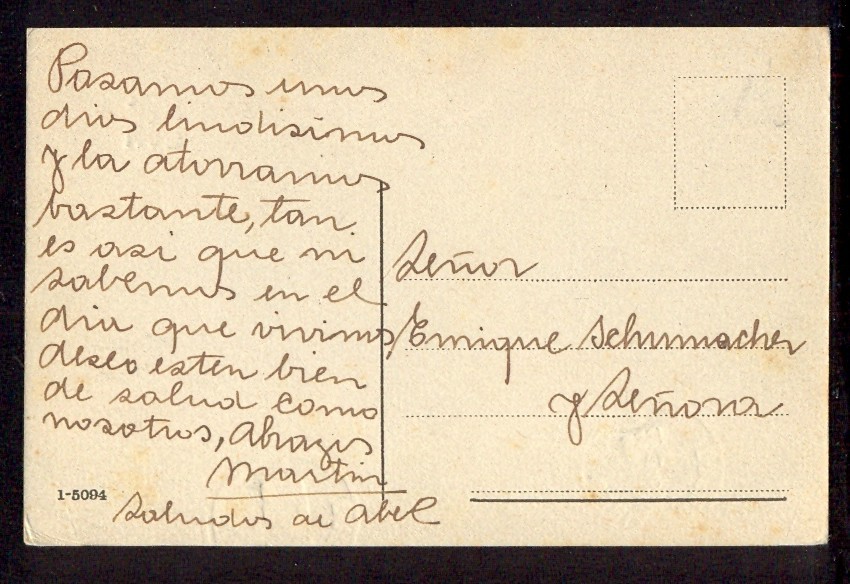 Pasamos unos
dias lindisimos
y la atorramos
bastante, tan
es asi que ni
sabemos en el
dia que vivimos,
deseo esten bien
de salud como
nosotros, Abrazos
Martin
Saludos de Abel
1-5094
Señor
Enrique Schumacher
y Señora